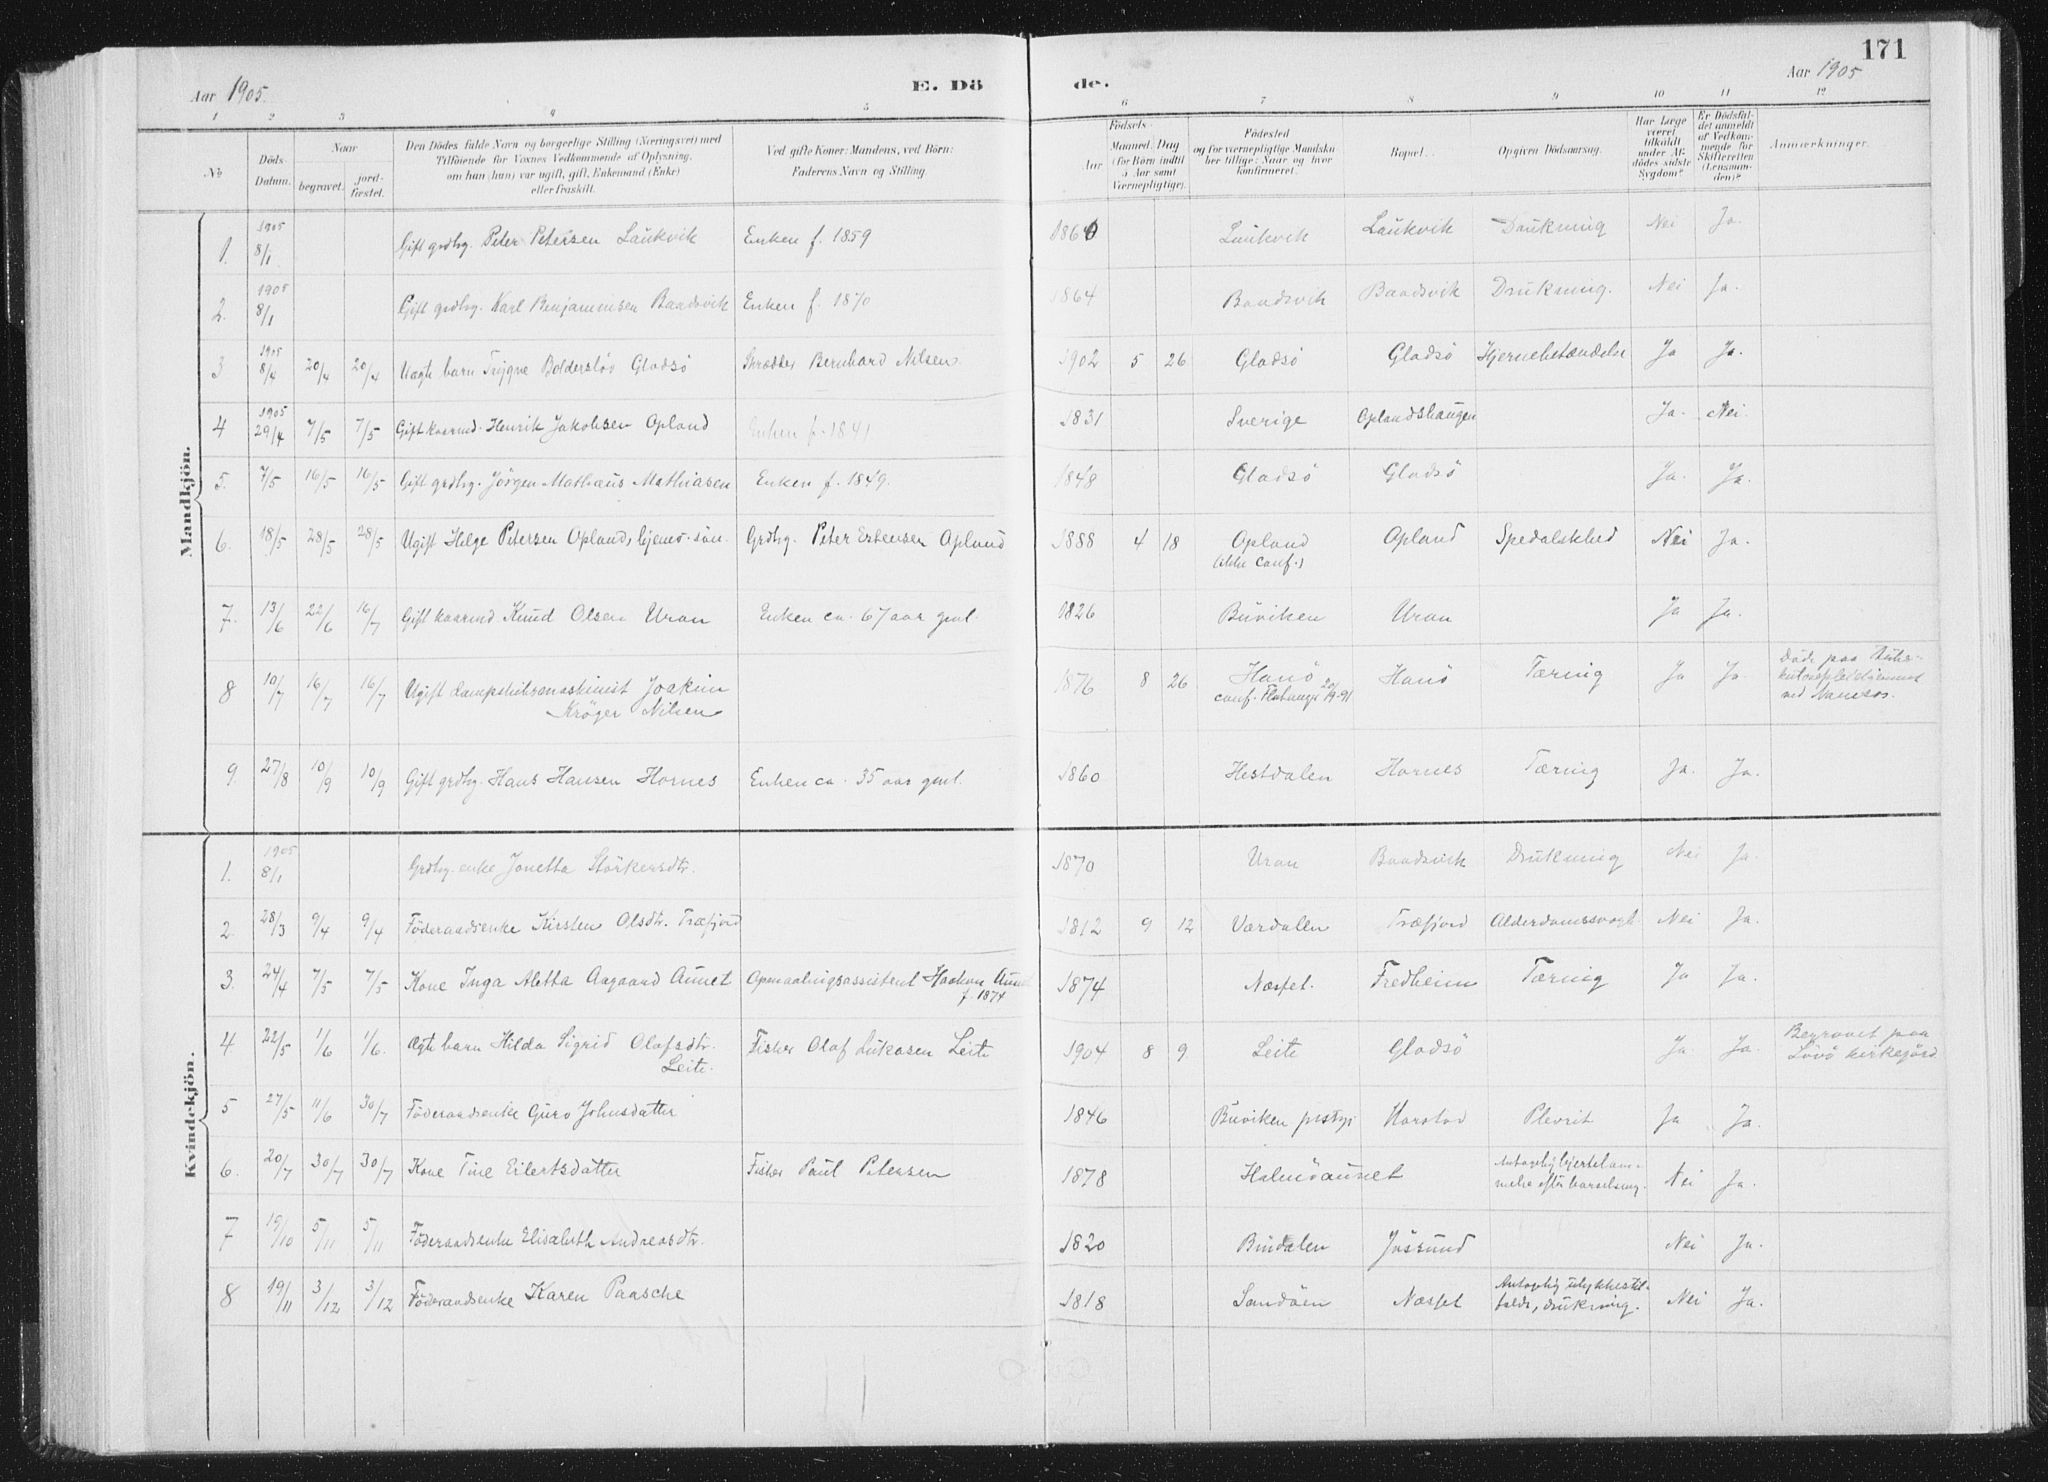 171
Aar 1905.
E. Dö
de.
Aar 1905
1 2 3 4 5 6 7 8 9 10 11 12
No
Döds Datum.
Naar
begravet.
jordfæstet.
Den Dödes fulde Navn og borgerlige Stilling (Næringsvei) med
Tilföiende for Voxnes Vedkommende af Oplysning,
om han (hun) var ugift, gift, Enkemand (Enke)
eller fraskilt.
Ved gifte Koner: Mandens, ved Börn:
Faderens Navn og Stilling.
Födsels
Aar
Maaned Dag
(for Börn indtil
5 Aar samt
Værnepligtige).
Födested
og for værnepligtige Mandskaber tillige: Naar og hvor
konfirmeret.
Bopæl.
Opgiven Dödsaarsag.
Har Læge
været
tilkaldt
under Afdödes sidste
Sygdom?
Er Dödsfaldet anmeldt
af Vedkommende for
Skifteretten
(Lensmanden)?
Anmærkninger.
Mandkjön.
1. 1905 8/1 Gift grdbg. Peter Petersen Laukvik Enken f. 1859 1860 Laukvik Laukvik Drukning Nei Ja.
2. 1905 8/1 Gift grdbg. Karl Benjaminsen Baadsvik Enken f. 1870 1864 Baadsvik Baadsvik Drukning. Nei Ja.
3 1905 8/4 20/4 20/4 Uægte barn Trygve Boldersløv Gladsö Skrædder Bernhard Nilsen. 1902 5 26 Gladsö Gladsö Hjernebetændelse Ja Ja.
4 1905 29/4 7/5 7/5 Gift kaarmd. Henrik Jakobsen Opland Enken f. 1841 1831 Sverige Oplandshaugen Ja. Nei.
5. 7/5 16/5 16/5 Gift grdbg. Jörgen Mathæus Mathiasen Enken f. 1849. 1848 Gladsö Gladsö Ja. Ja.
6. 18/5 28/5 28/5 Ugift Helge Petersen Opland, hjemv. sön. Grdbg. Peter Ertensen Opland 1888 4 18 Opland (ikke conf.) Opland Spedalskhed Nei Ja.
7. 13/6 22/6 16/7 Gift kaarmd Knud Olsen Uran Enken ca. 67 aar gml. 1826 Buviken Uran Ja Ja.
8 10/7 16/7 16/7 Ugift dampskibsmaskinist Joakim
Kröger Nilsen 1876 8 26 Hanö
conf. Flatanger 20/9-91 Hanö Tæring Ja Ja. Död paa
ved Namsos.
9. 27/8 10/9 10/9 Gift grdbg. Hans Hansen Hornes Enken ca. 35 aar gml. 1860 Hestdalen Hornes Tæring Ja. Ja.
Kvindekjön.
1. 1905 8/1 Grdbg. enke Jonetta Störkersdtr. 1870 Uran Baadsvik Drukning Nei Ja.
2. 28/3 9/4 9/4 Föderaadsenke Kirsten Olsdtr. Træfjord 1812 9 12 Værdalen Træfjord Alderdomssvagh. Nei Ja.
3. 24/4 7/5 7/5 Kone Inga Aletta Aagaard Aunet Opmaalingsassistent Haakon Aunet
f. 1874 1874 Næsset. Fredheim Tæring Ja Ja.
4. 22/5 1/6 1/6. Ægte barn Hilda Sigrid Olafsdtr.
Leite. Fisker Olaf Lukasen Leite 1904 8 9. Leite Gladsö Ja. Ja. Begravet paa
Lövö kirkegård
5 27/5 11/6 30/7 Föderaadsenke Guro Johnsdatter 1846 Buviken prstgj. Harstad Plevrit Ja Ja.
6. 20/7 30/7 30/7 Kone Tine Eilertsdatter Fisker Paul Petersen 1878 Halmöaunet Antagelig hjertelammelse efter barselseng. Nei Ja.
7 19/10 5/11 5/11 Föderaadsenke Elisabeth Andreasdtr. 1820 Bindalen Jössund Nei Ja.
8 19/11 3/12 3/12 Föderaadsenke Karen Paasche 1818 Sandöen Næsset Antagelig ulykkestilfælde, drukning. Nei Ja.